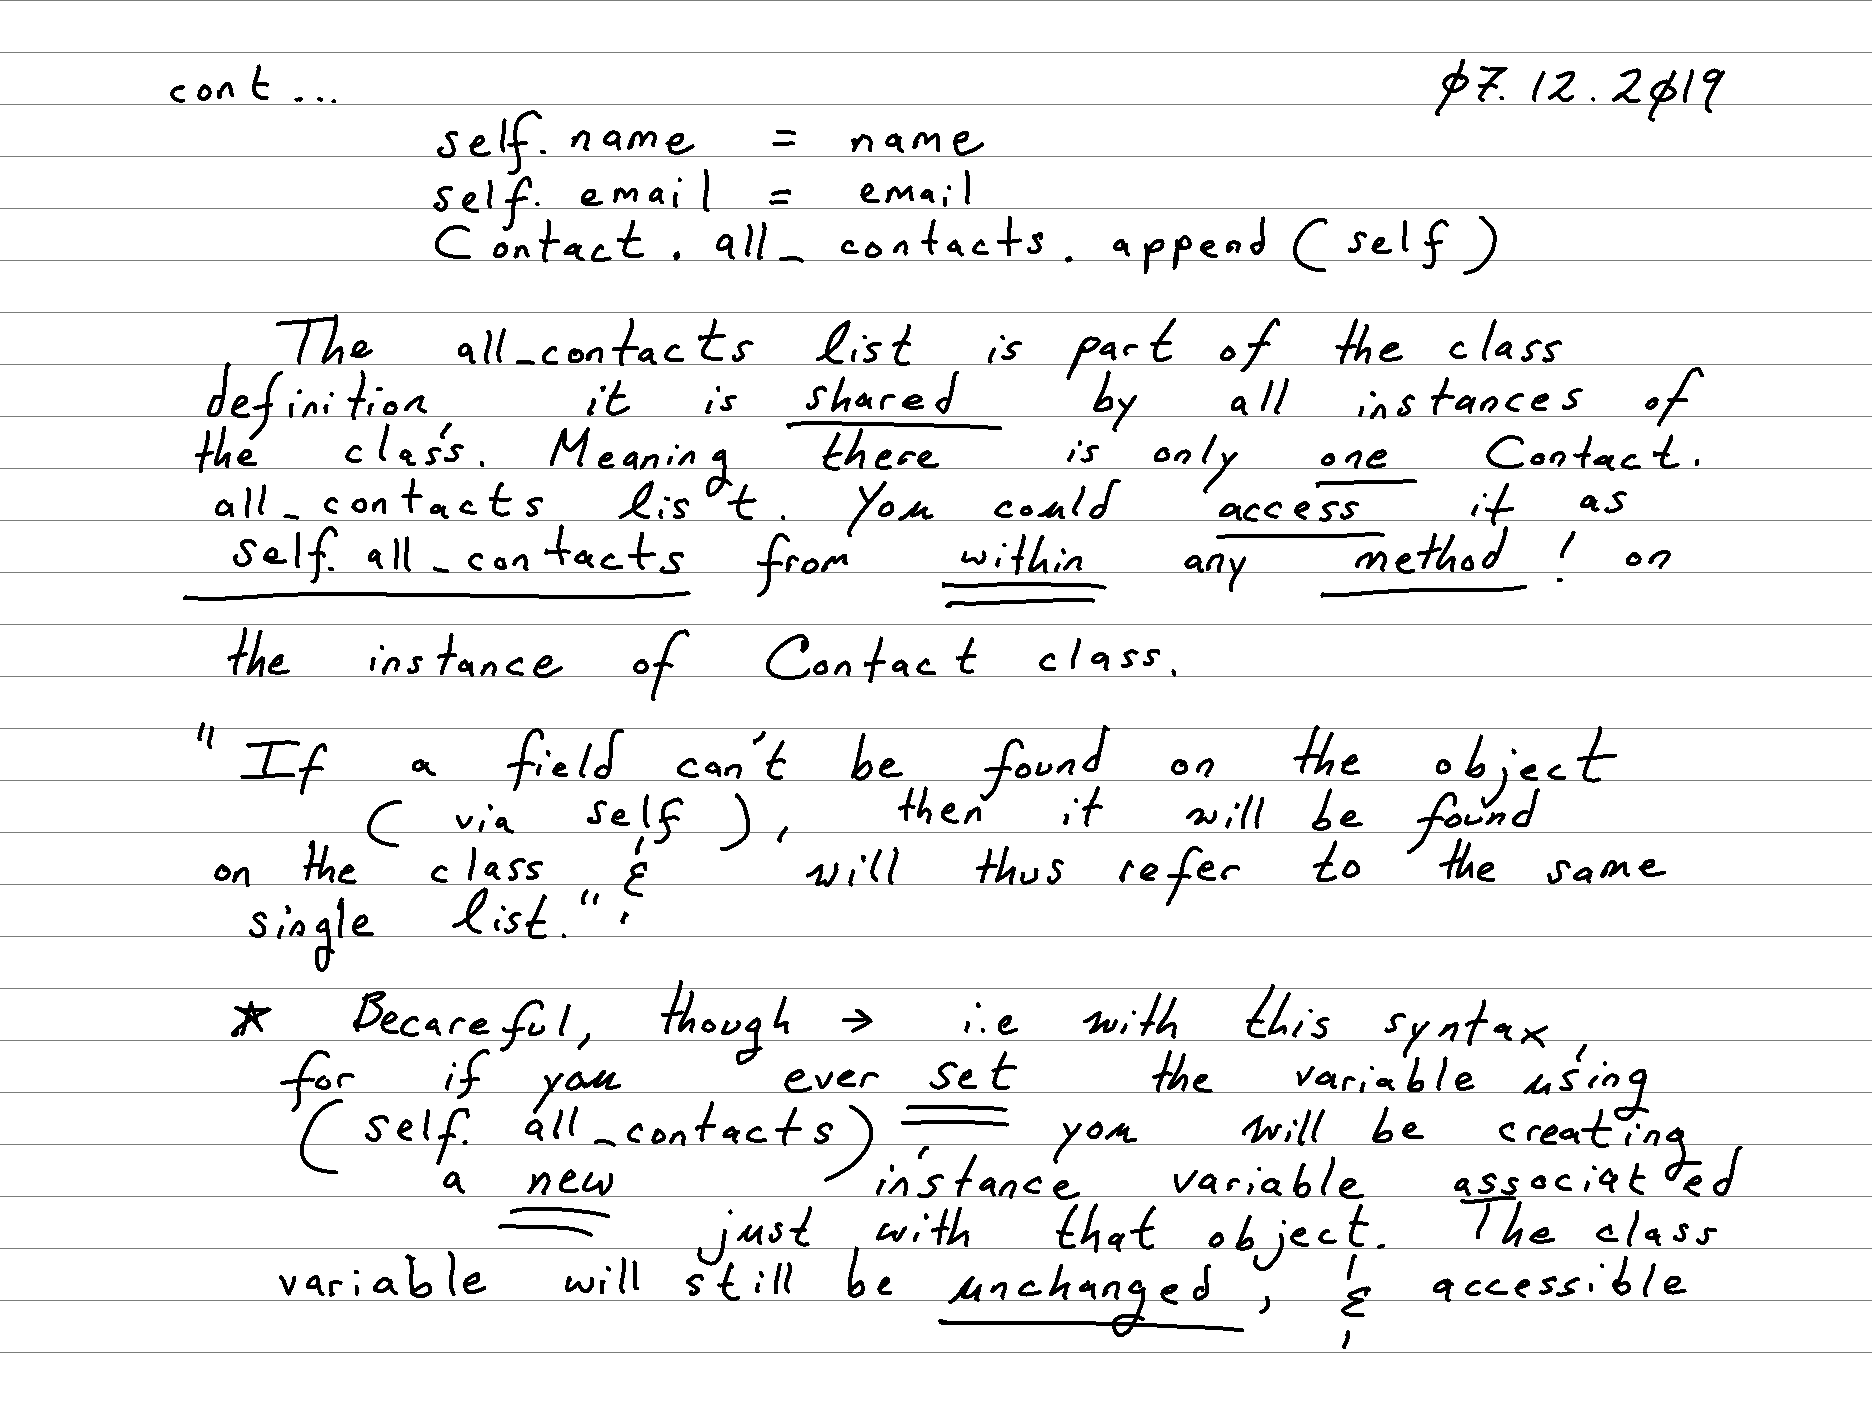 cont... 07.12.2019
self.name = name
self.email = email
Contact.all_contacts.append(self)
The all_contacts list is part of the class
definition, it is shared by all instances of
the class. Meaning there is only one Contact.
all_contacts list. You could access it as
self.all_contacts from within any method! on
the instance of Contact class.
"If a field can't be found on the object
(via self), then it will be found
on the class & will thus refer to the same
single list."
* Becareful, though → i.e with this syntax,
for if you ever set the variable using
(self.all_contacts), you will be creating
a new instance variable associated
just with that object. The class
variable will still be unchanged, & accessible